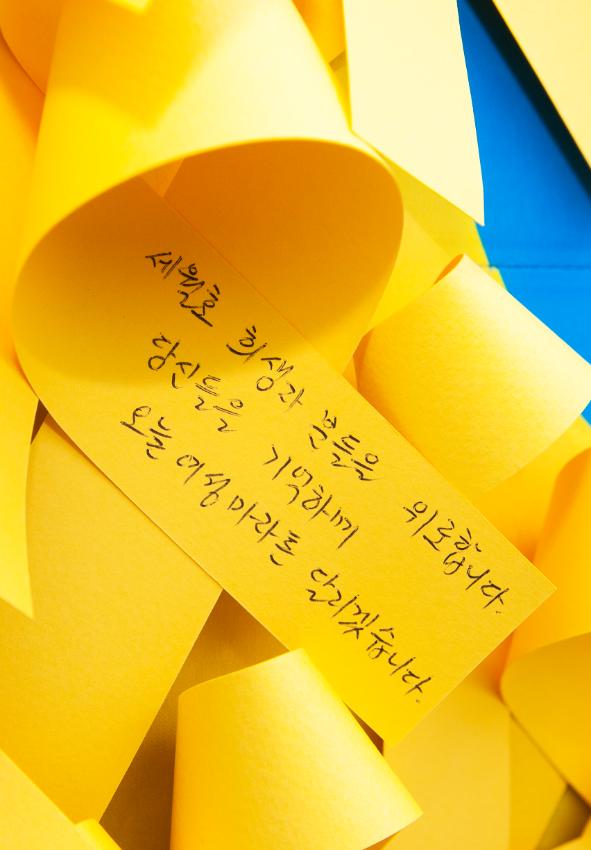 세월호 희생자 분들을 위로합니다.
당신들을 기억하며
오늘 여성마라톤 달리겠습니다.